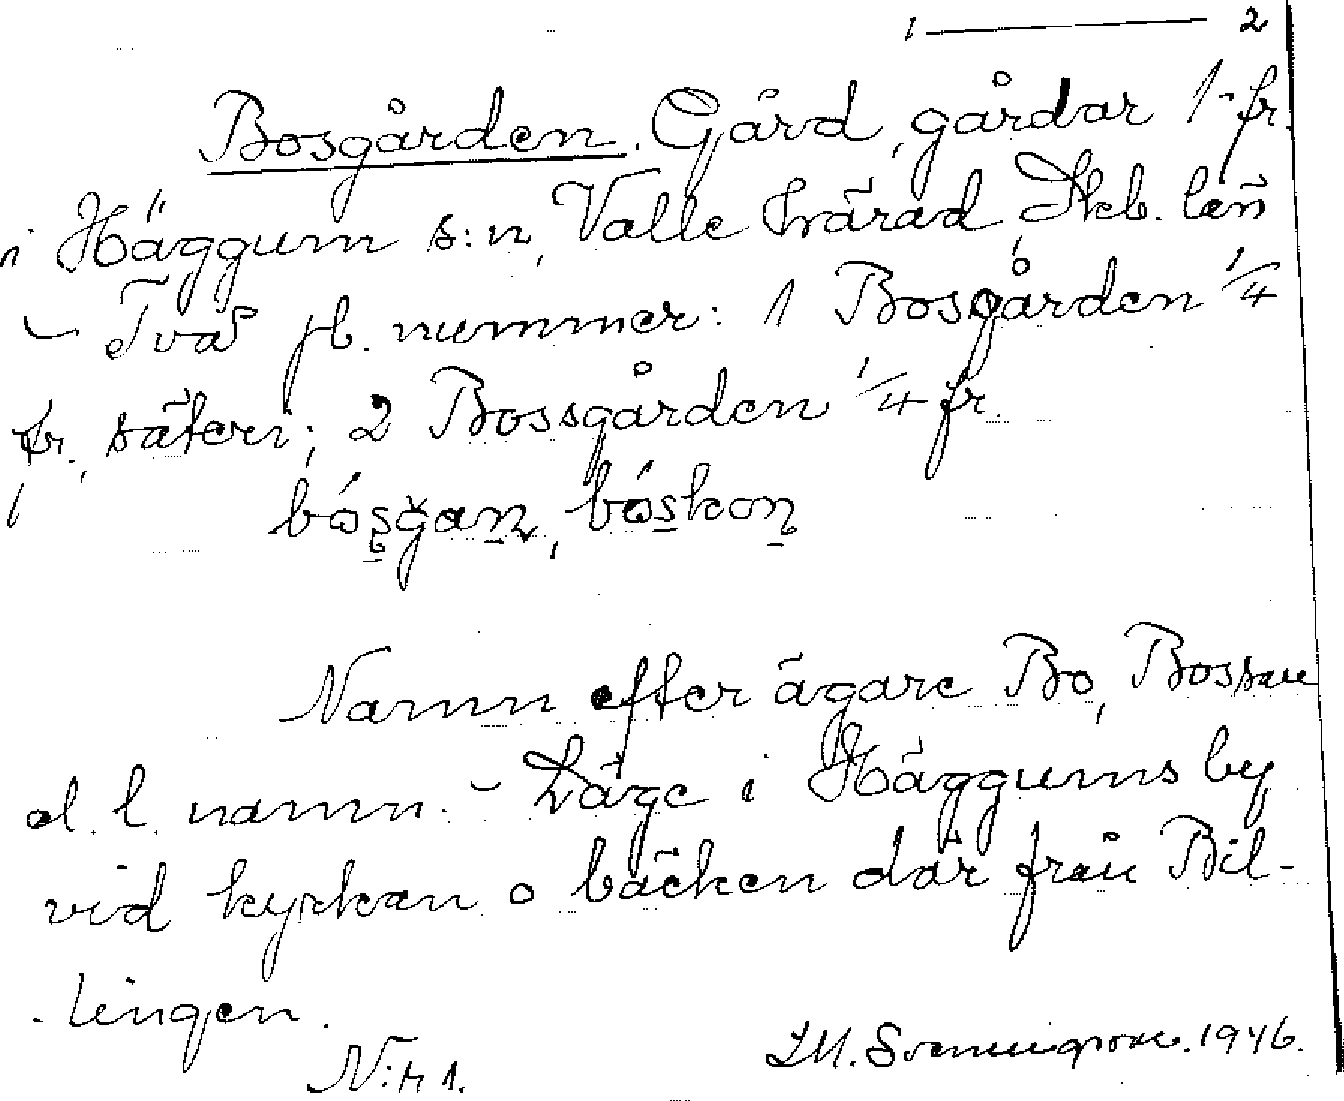 1 — 2
Bosgården. Gård, gårdar 1 fr.
i Häggum s:n, Valle härad, Skb. län
– Två jb. nummer: 1 Bosgården 1/4
fr. säteri; 2 Bossgården 1/4 fr.
bósgan, bóskon
Namn efter ägare Bo, Bosson
d. l. namn. – Läge i Häggums by
vid kyrkan o bäcken där från Bil-
lingen.
N:r 1. 1946.